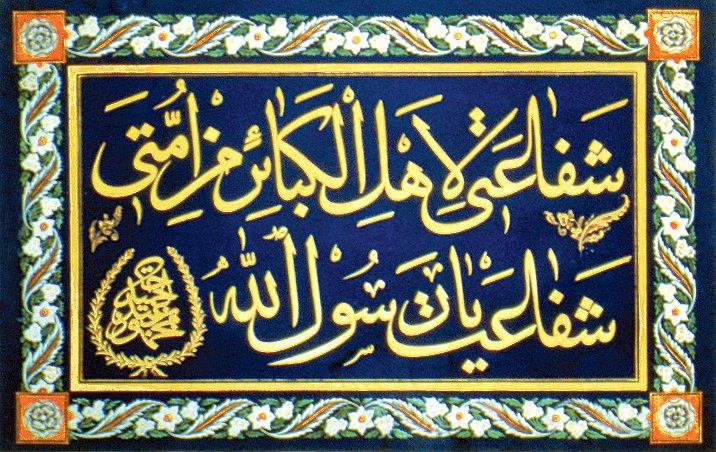 شَفَاعَتِى لِأَهْلِ الْكَبَائِرِ مِنْ اُمَّتِى
شَفَاعَت يَا رَسُولَ اللّٰه